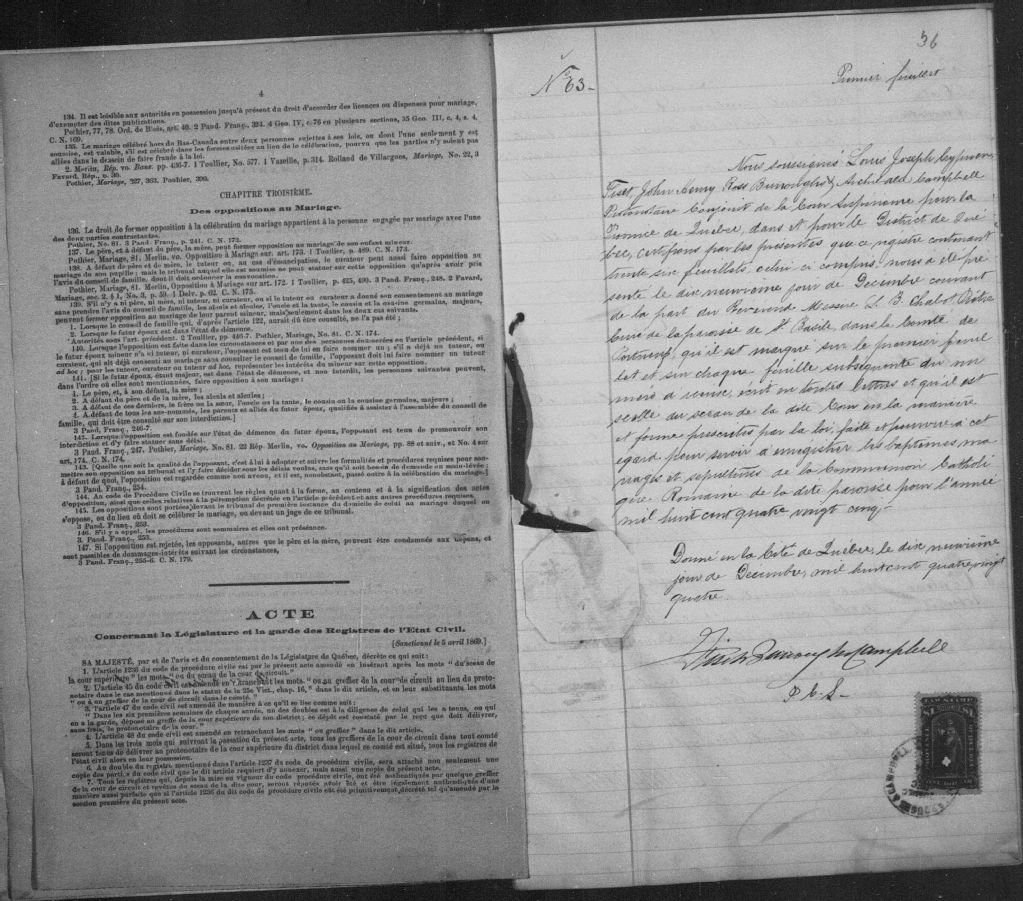 4
134. Il est loisible aux autorités en possession jusqu'à présent du droit d'accorder des licences ou dispenses pour mariage,
d'exempter des dites publications.
Pothier, 77, 78. Ord. de Blois, art. 40. 2 Pand. Franç., 324. 4 Geo. IV, c. 76 en plusieurs sections, 35 Geo. III, c, 4, s. 4.
C. N. 169.
135. Le mariage célébré hors du Bas-Canada entre deux personnes sujettes à ses lois, ou dont l'une seulement y est
soumise, est valable, s'il est célébré dans les formes usitées au lieu de la célébration, pourvu que les parties n'y soient pas
allées dans le dessein de faire fraude à la loi.
2. Merlin, Rép. vo. Bans. pp. 436-7. 1 Toullier, No. 577. 1 Vazeille, p. 314. Rolland de Villargues, Mariage, No. 22, 3
Favard, Rép., p. 30.
Pothier, Mariage, 327, 363. Pouhier, 399.
CHAPITRE TROISIÈME.
Des oppositions au Mariage.
136. Le droit de former opposition à la célébration du mariage appartient à la personne engagée par mariage avec l'une
des deux parties contractantes.
Pothier, No. 81. 3 Pand. Franç., p. 241. C. N. 172.
137. Le père, et à défaut du père, la mère, peut former opposition au mariage de son enfant mineur.
Pothier, Mariage, 81. Merlin, vo. Opposition à Mariage sur. art. 173. 1 Toullier, p. 489. C. N. 173.
138. A défaut de père et de mère, le tuteur ou, au cas d'émancipation, le curateur peut aussi faire opposition au
mariage de son pupille; mais le tribunal auquel elle est soumise ne peut statuer sur cette opposition qu'après avoir pris
l'avis du conseil de famille, dont il doit ordonner la convocation.
Pothier, Mariage, 81. Merlin, Opposition à Mariage sur art. 172. 1 Toullier, p. 425, 490. 3 Pand. Franç., 248. 2 Favard,
Mariage, sec. 2. § 1, No. 3, p. 59. 1 Delv. p. 62. C. N. 175.
139. S'il n'y a ni père, ni mère, ni tuteur, ni curateur, ou si le tuteur ou curateur a donné son consentement au mariage
sans prendre l'avis du conseil de famille, les aïeuls et aïeules, l'oncle et la tante, le cousin et la cousine germains, majeurs,
peuvent former opposition au mariage de leur parent mineur, mais seulement dans les deux cas suivants.
1. Lorsque le conseil de famille qui, d'après l'article 122, aurait dû être consulté, ne l'a pas été;
2. Lorsque le futur époux est dans l'état de démence.
Autorités sous l'art. précédent. 2 Toullier, pp. 426-7. Pothier, Mariage, No. 81. C. N. 174.
140. Lorsque l'opposition est faite dans les circonstances et par une des personnes énoncées en l'article précédent, si
le futur époux mineur n'a ni tuteur, ni curateur, l'opposant est tenu de lui en faire nommer un; s'il a déjà un tuteur, ou
curateur, qui ait déjà consenti au mariage sans consulter le conseil de famille, l'opposant doit lui faire nommer un tuteur
ad hoc; pour les tuteur, curateur ou tuteur ad hoc, représenter les intérêts du mineur sur cette opposition.
141. [Si le futur époux, étant majeur, est dans l'état de démence, et non interdit, les personnes suivantes peuvent,
dans l'ordre où elles sont mentionnées, faire opposition à son mariage:
1. Le père, et, à son défaut, la mère;
2. A défaut du père et de la mère, les aïeuls et aïeules;
3. A défaut de ces derniers, le frère ou la sœur, l'oncle ou la tante, le cousin ou la cousine germains, majeurs;
4. A défaut de tous les sus-nommés, les parents et alliés du futur époux, qualifiés à assister à l'assemblée du conseil de
famille, qui doit être consulté sur son interdiction.]
3 Pand. Franç., 246-7.
142. Lorsque l'opposition est fondée sur l'état de démence du futur époux, l'opposant est tenu de promouvoir son
interdiction et d'y faire statuer sans délai.
3 Pand. Franç., 247. Pothier, Mariage, No. 81. 22 Rép. Merlin, vo. Opposition au Mariage, pp. 88 et suiv., et No. 4 sur
art. 174. C. N. 174.
143. [Quelle que soit la qualité de l'opposant, c'est à lui à adopter et suivre les formalités et procédures requises pour sou-
mettre son opposition au tribunal et l'y faire décider sous les délais voulus, sans qu'il soit besoin de demande en main-levée;
à défaut de quoi, l'opposition est regardée comme non avenue, et il est, nonobstant, passé outre à la célébration du mariage.]
3 Pand. Franç., 254.
144. Au code de Procédure Civile se trouvent les règles quant à la forme, au contenu et à la signification des actes
d'opposition, ainsi que celles relatives à la péremption décrétée en l'article précédent et aux autres procédures requises.
145. Les oppositions sont portées devant le tribunal de première instance du domicile de celui au mariage duquel on
s'oppose, ou du lieu où doit se célébrer le mariage, ou devant un juge de ce tribunal.
3 Pand. Franç., 253.
146. S'il y a appel, les procédures sont sommaires et elles ont préséance.
3. Pand. Franç., 253.
147. Si l'opposition est rejetée, les opposants, autres que le père et la mère, peuvent être condamnés aux dépens, et
sont passibles de dommages-intérêts suivant les circonstances,
3 Pand. Franç., 255-6. C. N. 179.
ACTE
Concernant la Législature et la garde des Registres de l'Etat Civil.
[Sanctionné le 5 avril 1869.]
SA MAJESTÉ, par et de l'avis et du consentement de la Législature de Québec, décrète ce qui suit:
1. L'article 1236 du code de procédure civile est par le présent acte amendé en insérant après les mots "du sceau de
la cour supérieure" les mots "ou du sceau de la cour de circuit."
2. L'article 45 du code civil est amendé en retranchant les mots "ou au greffier de la cour de circuit au lieu du proto-
notaire dans le cas mentionné dans le statut de la 25e Vict., chap. 16," dans le dit article, et en leur substituant les mots
"ou à un greffier de la cour de circuit dans le comté."
3. l'article 47 du code civil est amendé de manière à ce qu'il se lise comme suit:
"Dans les six premières semaines de chaque année, un des doubles est à la diligence de celui qui les a tenus, ou qui
en a la garde, déposé au greffe de la cour supérieure de son district; ce dépôt est constaté par le reçu que doit délivrer,
sans frais, le protonotaire de la cour."
4. L'article 48 du code civil est amendé en retranchant les mots "ou greffier" dans le dit article.
5. Dans les trois mois qui suivront la passation du présent acte, tous les greffiers de la cour de circuit dans tout comté
seront tenus de délivrer au protonotaire de la cour supérieure du district dans lequel ce comté est situé, tous les registres de
l'état civil alors en leur possession.
6. Au double du registre mentionné dans l'article 1237 du code de procédure civile, sera attaché non seulement une
copie des parties du code civil que le dit article requiert d'y annexer, mais aussi une copie du présent acte.
7. Tous les registres qui, depuis la mise en vigueur du code procédure civile, ont été authentiqués par quelque greffier
de la cour de circuit et revêtus du sceau de la dite cour, seront réputés avoir été et être légalement authentiqués d'une
manière aussi parfaite que si l'article 1236 du dit code de procédure civile eût été primitivement décrété tel qu'amendé par la
section première du présent acte.
36
No 63-
Premier feuillet
Nous soussignés Louis Joseph Cyprien
Fiset, John Henry Ross Burroughs & Archibald Campbell
Protonotaire Conjoint de la Cour Supérieure pour la
Province de Québec, dans et pour le District de Qué-
bec, certifions par les présentes que ce registre contenant
trente six feuillets celui ci compris nous a été pré-
senté le dix neuvième jour de Décembre courant
de la part du Reverend Messire L. B. Chabot Prêtre
Curé de la paroisse de St Basile, dans le Comté de
Portneuf, qu'il est marqué sur le premier feuil
let et sur chaque feuille subséquente du nu
méro à icelui, écrit en toutes lettres et qu'il est
scellé du sceau de la dite Cour en la manière
et forme prescrites par la loi, faite et pourvue à cet
égard pour servir à enregistrer les baptêmes ma
riages et sépultures de la Communion Catholi
que Romaine de la dite paroisse pour l'année
mil huit cent quatre vingt cinq-
Donné en la Cité de Québec, le dix neuvième
jour de Decembre, mil huit cent quatre vingt
quatre
Fiset Burroughs Campbell
P. C. S-
LAW STAMP